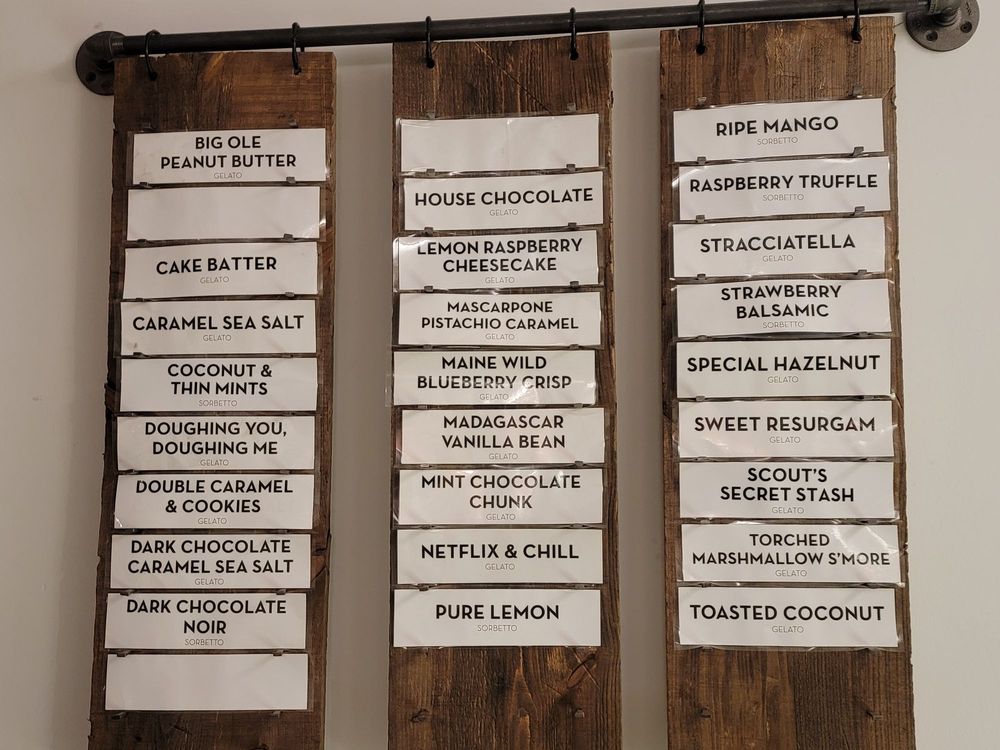 BIG OLE
PEANUT BUTTER
GELATO
CAKE BATTER
GELATO
CARAMEL SEA SALT
GELATO
COCONUT &
THIN MINTS
SORBETTO
DOUGHING YOU,
DOUGHING ME
GELATO
DOUBLE CARAMEL
& COOKIES
GELATO
DARK CHOCOLATE
CARAMEL SEA SALT
GELATO
DARK CHOCOLATE
NOIR
SORBETTO
HOUSE CHOCOLATE
GELATO
LEMON RASPBERRY
CHEESECAKE
GELATO
MASCARPONE
PISTACHIO CARAMEL
GELATO
MAINE WILD
BLUEBERRY CRISP
GELATO
MADAGASCAR
VANILLA BEAN
GELATO
MINT CHOCOLATE
CHUNK
GELATO
NETFLIX & CHILL
GELATO
PURE LEMON
SORBETTO
RIPE MANGO
SORBETTO
RASPBERRY TRUFFLE
SORBETTO
STRACCIATELLA
GELATO
STRAWBERRY
BALSAMIC
SORBETTO
SPECIAL HAZELNUT
GELATO
SWEET RESURGAM
GELATO
SCOUT'S
SECRET STASH
GELATO
TORCHED
MARSHMALLOW S'MORE
GELATO
TOASTED COCONUT
GELATO